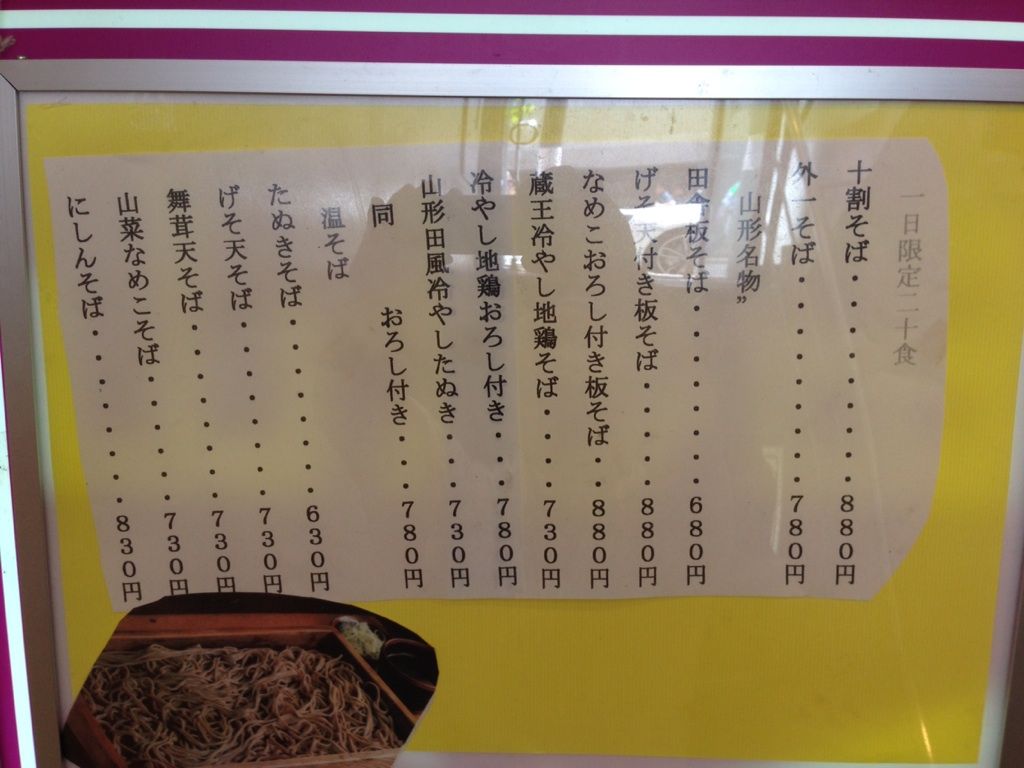 一日限定二十食
十割そば・・・・・・・・880円
外一そば・・・・・・・・780円
山形名物”
田舎板そば・・・・・・・680円
げそ天付き板そば・・・・・880円
なめこおろし付き板そば・・880円
蔵王冷やし地鶏そば・・・・730円
冷やし地鶏おろし付き・・・780円
山形田風冷やしたぬき・・・730円
同　おろし付き・・・780円
温そば
たぬきそば・・・・・・・・・630円
げそ天そば・・・・・・・・730円
舞茸天そば・・・・・・・・730円
山菜なめこそば・・・・・・730円
にしんそば・・・・・・・・・830円